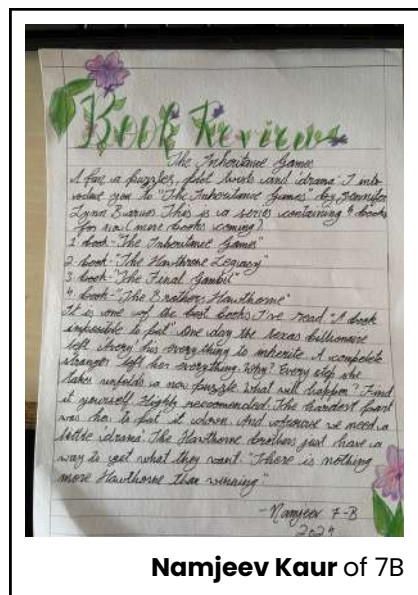 Book Review
The Inheritance Games
A fan a puzzles, plot twists and drama? I intro
voduce you to "The Inheritance Games" by Jennifer
Lynn Barnes This is a series containing 4 books
for now (more books coming).
1 book-"The Inheritance Games"
2 book-"The Hawthrone Legacy"
3 book-"The Final Gambit"
4 book-"The Brothers Hawthorne"
It is one of the best books I've read. "A book
impossible to put" One day the texas billionaire
left Avery his everything to inherite. A compelete
stranger left her everything. Why? Every step she
takes unfolds a new puzzle. What will happen? Find
it yourself. Highly recommended. The hardest part
was to put it down. And ofcourse we need a
little drama. The Hawthorne brothers just have a
way to get what they want. "There is nothing
more Hawthorne than winning"
-Namjeev 7-B
Namjeev Kaur of 7B